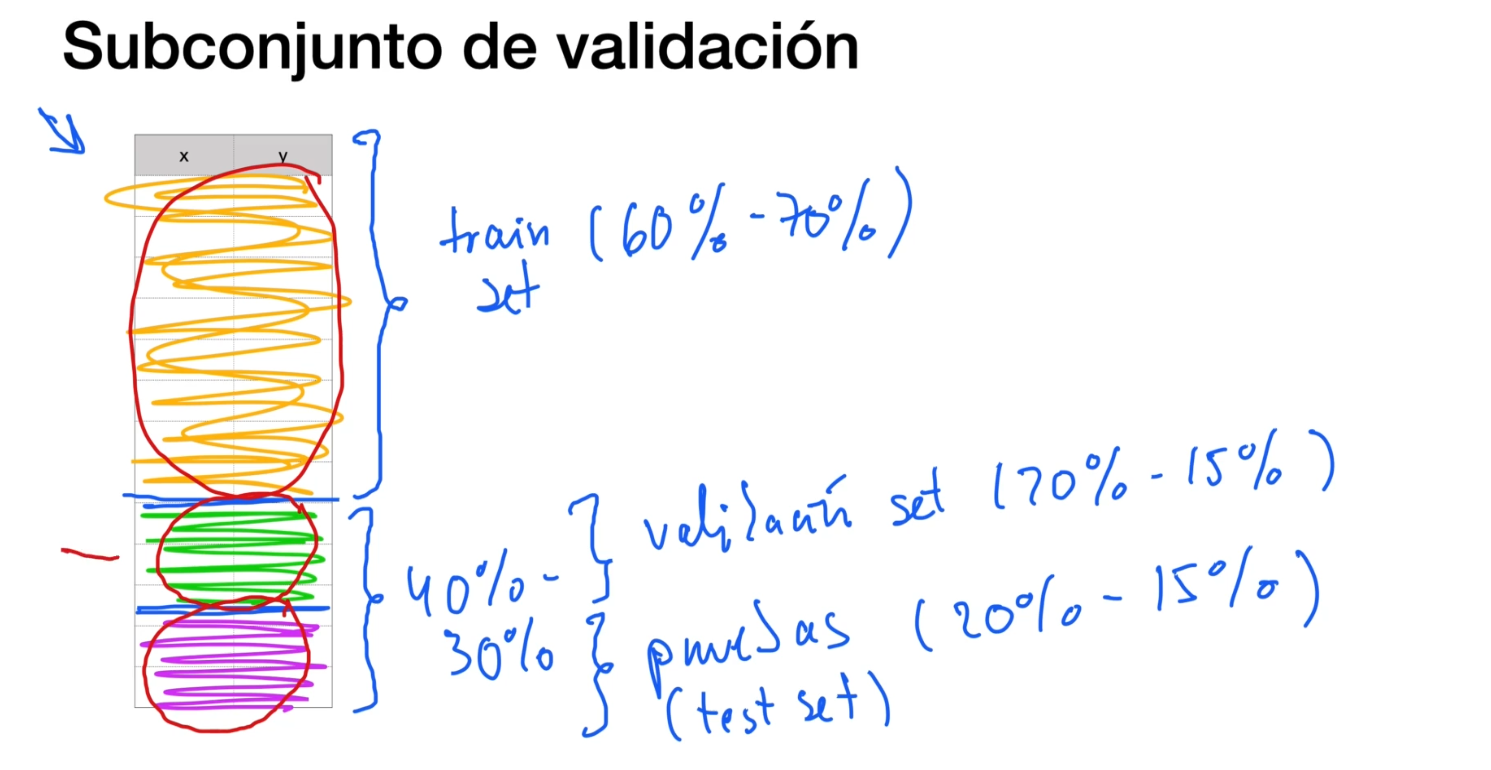 Subconjunto de validación
x y
train (60% - 70%)
set
validación set (20% - 15%)
40% -
30%
pruebas (20% - 15%)
(test set)